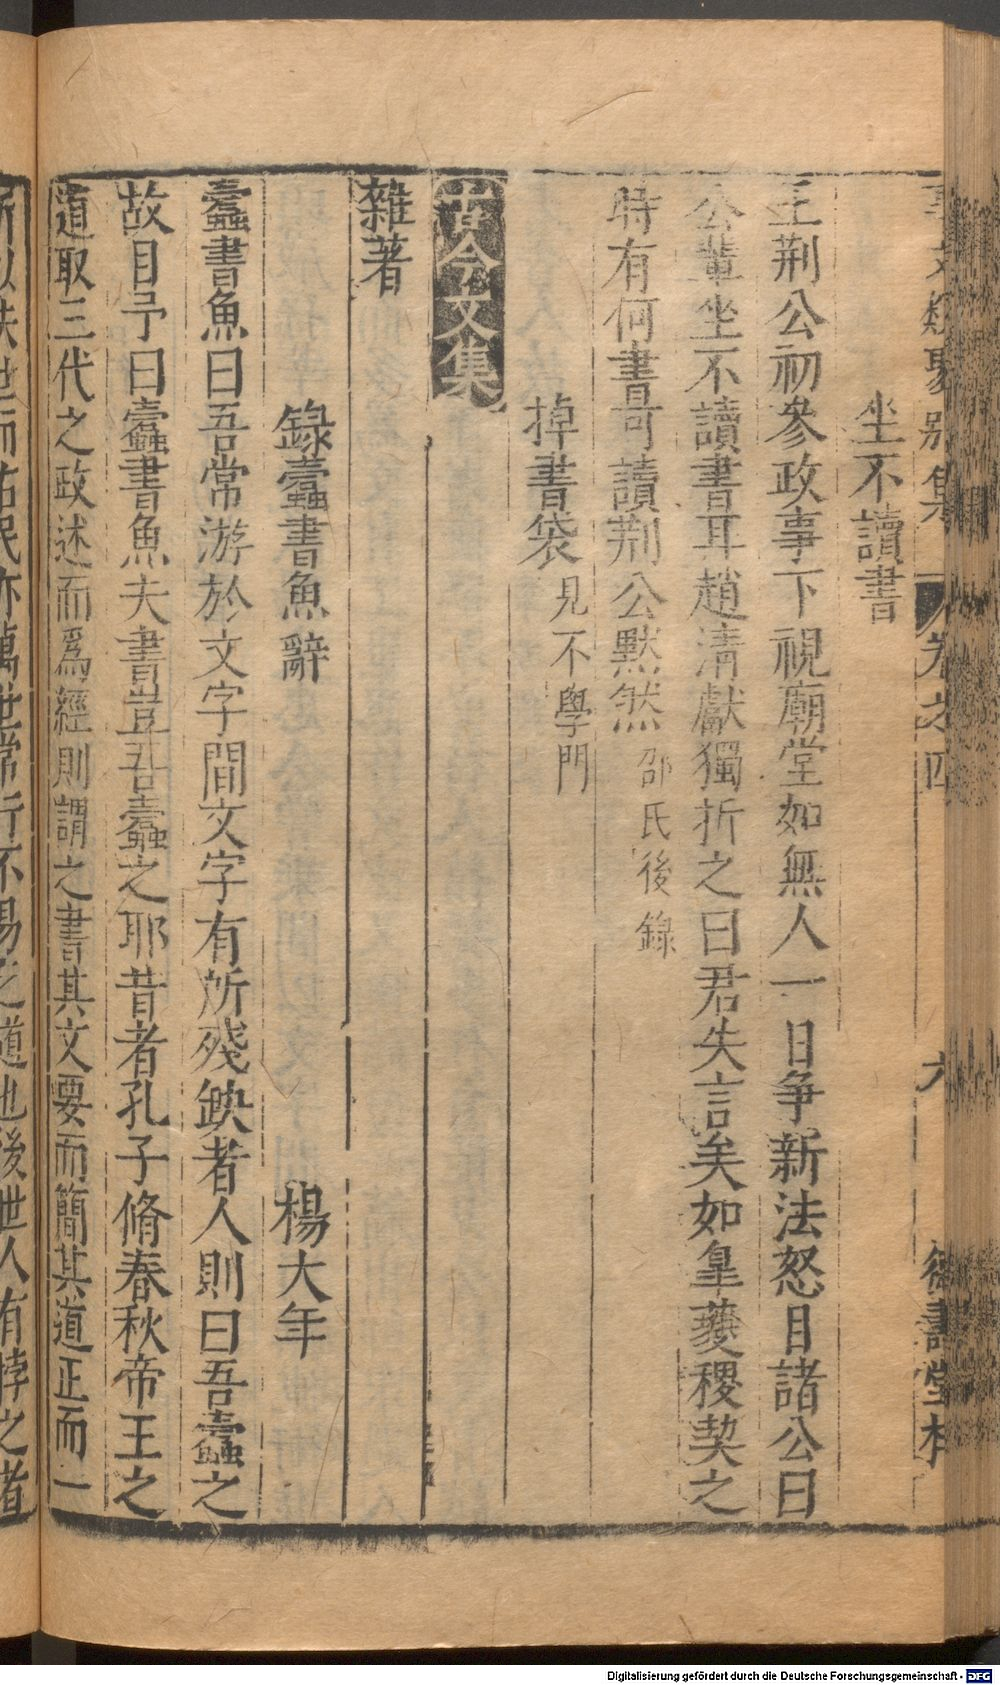 事文類聚別集 卷之四 六
坐不讀書
王荆公初參政事下視廟堂如無人一日爭新法怒目諸公曰
公輩坐不讀書耳趙清獻獨折之曰君失言矣如臯䕫稷契之
時有何書可讀荆公默然 邵氏後錄
掉書袋 見不學門
古今文集
雜著
錄蠹書魚辭 楊大年
蠹書魚曰吾常游於文字間文字有所殘缺者人則曰吾蠹之
故目予曰蠹書魚夫書豈吾蠹之耶昔者孔子脩春秋帝王之
道取三代之政述而爲經則謂之書其文要而簡其道正而一
所以扶世而佑民亦萬世常行不易之道也後世人有悖之者
Digitalisierung gefördert durch die Deutsche Forschungsgemeinschaft - DFG